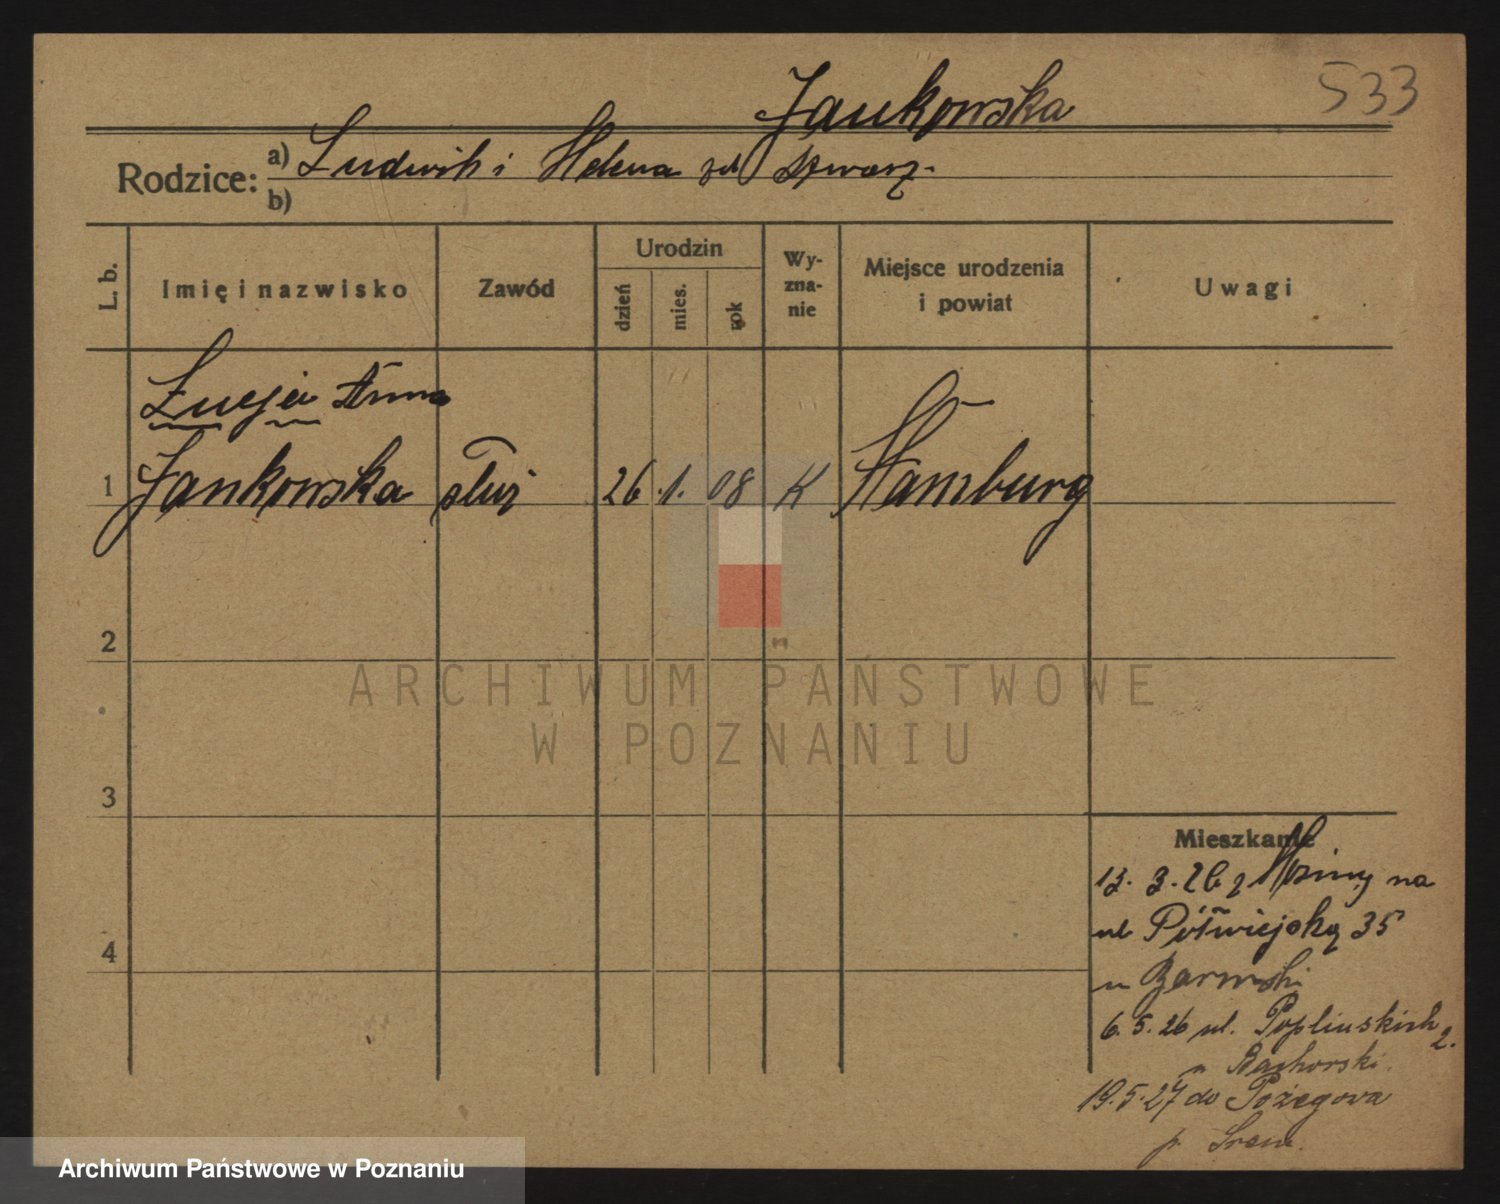 Jankowska
533
Rodzice: a) Ludwik i Helena
b)
L. b.
Imię i nazwisko
Zawód
Urodzin
dzień
mies.
rok
Wy-
zna-
nie
Miejsce urodzenia
i powiat
Uwagi
Łucja Anna
1 Jankowska służ 26. 1. 08 K Hamburg
2
3
4
Mieszkanie
13. 3. 26 z Mosiny na
ul Półwiejską 35
6. 5. 26 ul. Poplinskich 2.
19. 5. 27 do Pożegowa
p. Śrem.
ARCHIWUM PAŃSTWOWE
W POZNANIU
Archiwum Państwowe w Poznaniu